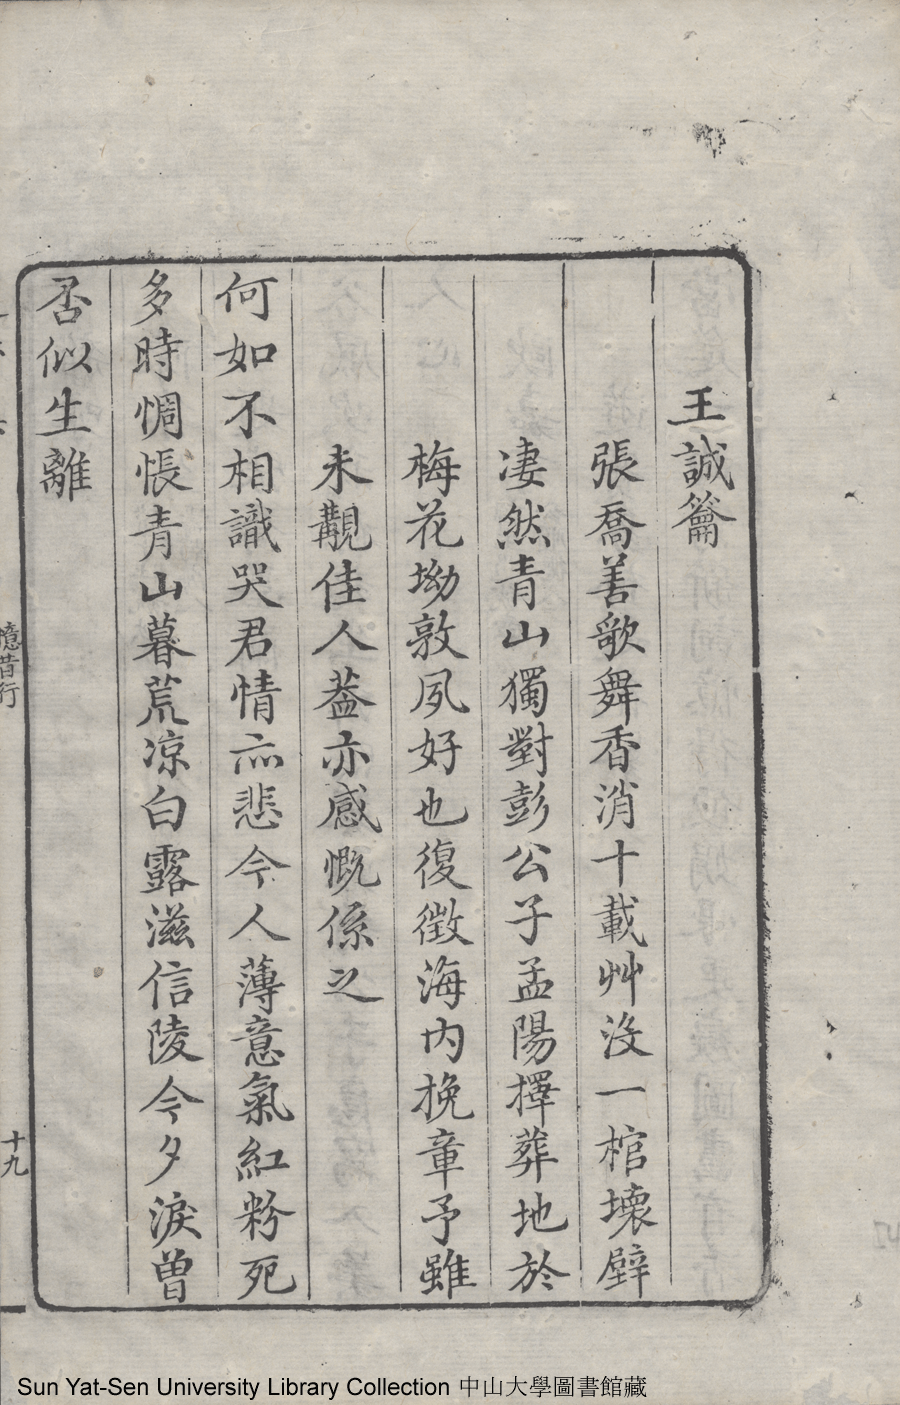 王誠籥
張喬善歌舞香消十載艸沒一棺壞壁
凄然青山獨對彭公子孟陽擇葬地於
梅花坳敦夙好也復徵海内挽章予雖
未覯佳人葢亦感慨係之
何如不相識哭君情亦悲今人薄意氣紅粉死
多時惆悵青山暮荒凉白露滋信陵今夕淚曾
否似生離
憶昔行
十九
Sun Yat-Sen University Library Collection 中山大學圖書館藏